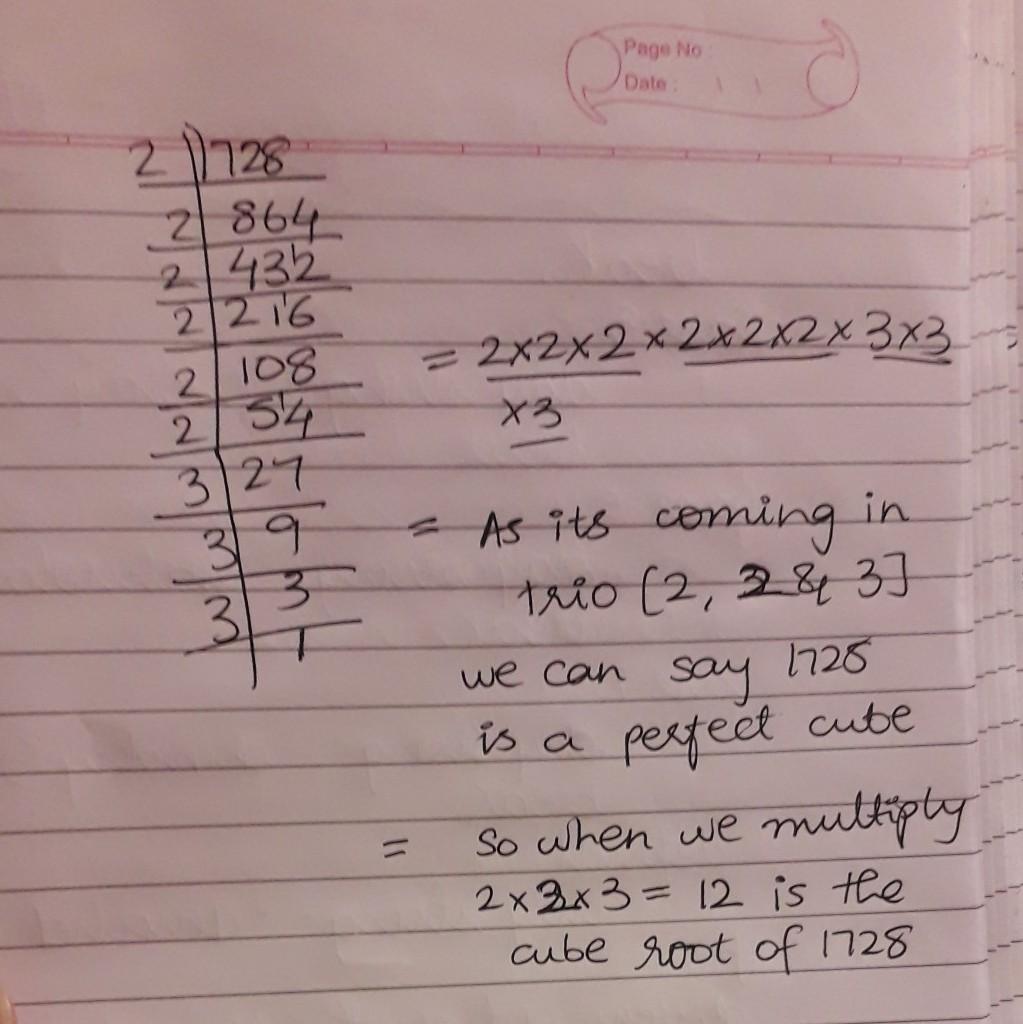 Page No
Date :
2 1728
2 864
2 432
2 216
2 108
2 54
3 27
3 9
3 3
1
= 2×2×2 × 2×2×2 × 3×3
×3
= As its coming in
trio [2, 2 & 3]
we can say 1728
is a perfect cube
= so when we multiply
2×2×3 = 12 is the
cube root of 1728